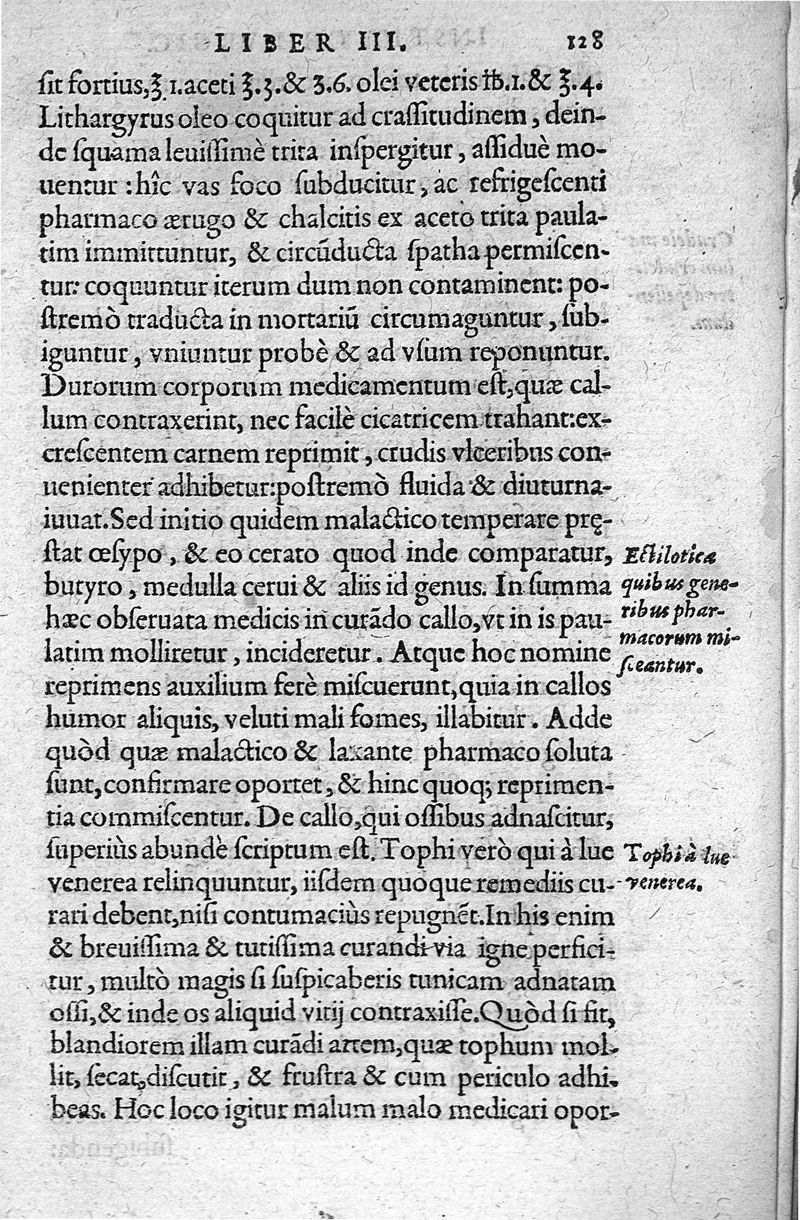 LIBER III. 128
ſit fortius,℥ 1.aceti ℥.3.& ʒ.6. olei veteris ℔.1.& ℥.4.
Lithargyrus oleo coquitur ad craſſitudinem, dein-
de ſquama leuiſſimè trita inſpergitur, aſſiduè mo-
uentur : hîc vas foco ſubducitur, ac refrigeſcenti
pharmaco ærugo & chalcitis ex aceto trita paula-
tim immittuntur, & circũducta ſpatha permiſcen-
tur: coquuntur iterum dum non contaminent: po-
ſtremò traducta in mortariũ circumaguntur, ſub-
iguntur, vniuntur probè & ad vſum reponuntur.
Durorum corporum medicamentum eſt,quæ cal-
lum contraxerint, nec facilè cicatricem trahant:ex-
creſcentem carnem reprimit, crudis vlceribus con-
uenienter adhibetur:poſtremò fluida & diuturna
iuuat.Sed initio quidem malactico temperare prę-
ſtat œſypo, & eo cerato quod inde comparatur,
butyro, medulla cerui & aliis id genus. In ſumma
hæc obſeruata medicis in curãdo callo,vt in is pau-
latim molliretur, incideretur. Atque hoc nomine
reprimens auxilium ferè miſcuerunt,quia in callos
humor aliquis, veluti mali fomes, illabitur. Adde
quòd quæ malactico & laxante pharmaco ſoluta
ſunt,confirmare oportet, & hinc quoq; reprimen-
tia commiſcentur. De callo,qui oſſibus adnaſcitur,
ſuperiùs abundè ſcriptum eſt. Tophi verò qui à lue
venerea relinquuntur, iiſdem quoque remediis cu-
rari debent,niſi contumaciùs repugnẽt.In his enim
& breuiſſima & tutiſſima curandi via igne perfici-
tur, multò magis ſi ſuſpicaberis tunicam adnatam
oſſi,& inde os aliquid vitij contraxiſſe.Quòd ſi fit,
blandiorem illam curãdi artem,quæ tophum mol-
lit, ſecat,diſcutit, & fruſtra & cum periculo adhi-
beas. Hoc loco igitur malum malo medicari opor-
Ectilotica
quibus gene-
ribus phar-
macorum mi-
ſceantur.
Tophi à lue
venerea.